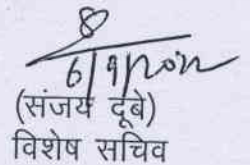 (संजय दूबे)
विशेष सचिव